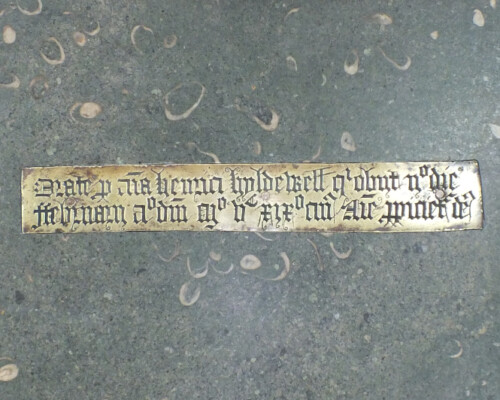 Orate p aīa henrici hyldewell qͥ obiit iiº die
ffebruarii aº dm̄ mº vᶜ xixº cuiº Aīe ppiciet' de'